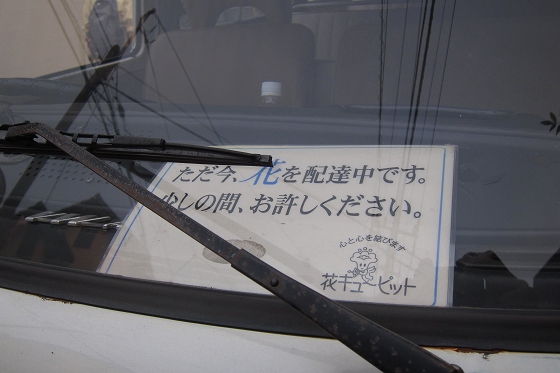 ただ今、花を配達中です。
少しの間、お許しください。
心と心を結びます
花キューピット